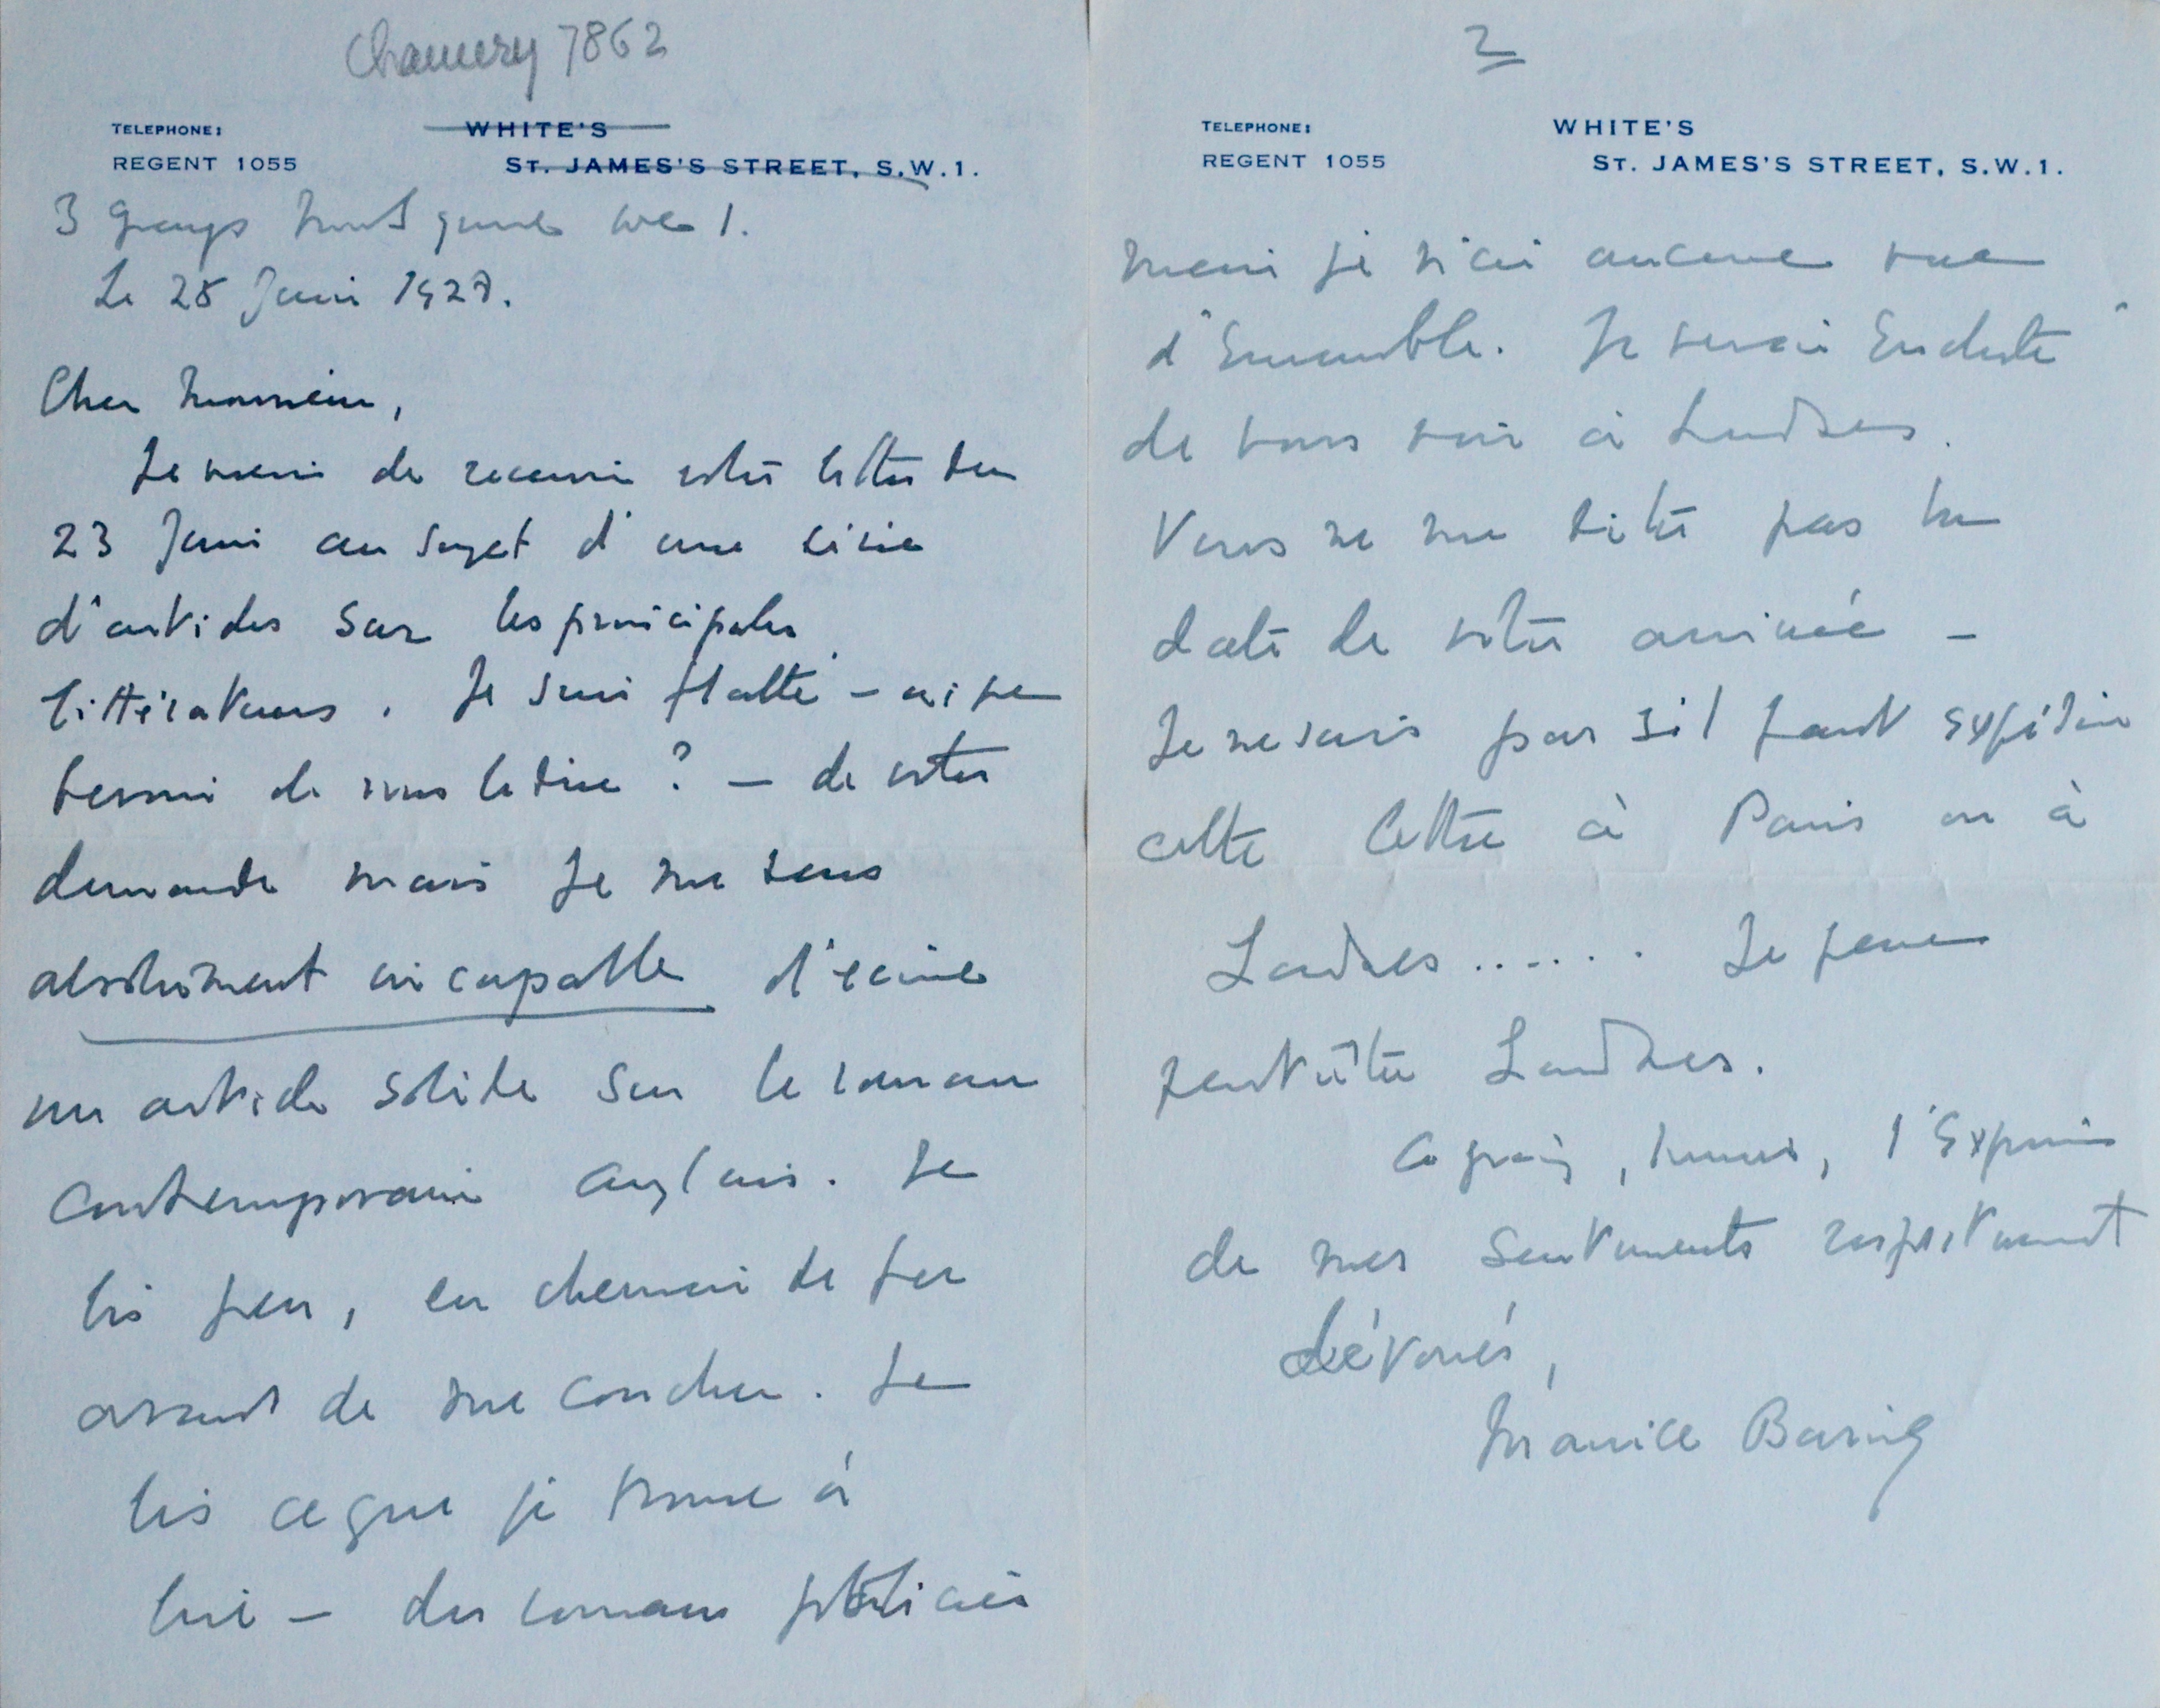 Chancery 7862
TELEPHONE:
REGENT 1055
WHITE'S
ST. JAMES'S STREET, S.W.1.
3 Grays Inn
Le 28 Juin 1927.
Cher Monsieur,
Je viens de recevoir votre lettre du
23 Juin au sujet d'une série
d'articles sur les principales
littératures. Je suis flatté – ai je
besoin de vous le dire ? – de votre
demande mais je me sens
absolument incapable d'écrire
un article solide sur le roman
contemporain anglais. Je
lis peu, en chemin de fer
avant de me coucher. Je
lis ce que je trouve à
lire – des romans policiers
2
TELEPHONE:
REGENT 1055
WHITE'S
ST. JAMES'S STREET, S.W.1.
mais je n'ai aucune vue
d'Ensemble. Je serai Enchanté
de vous voir à Londres.
Vous ne me dites pas la
date de votre arrivée –
Je ne sais pas s'il faut expédier
cette lettre à Paris ou à
Londres...... Je pense
peut être Londres.
Agréez, Monsieur, l'Expression
de mes sentiments
dévoués,
Maurice Baring